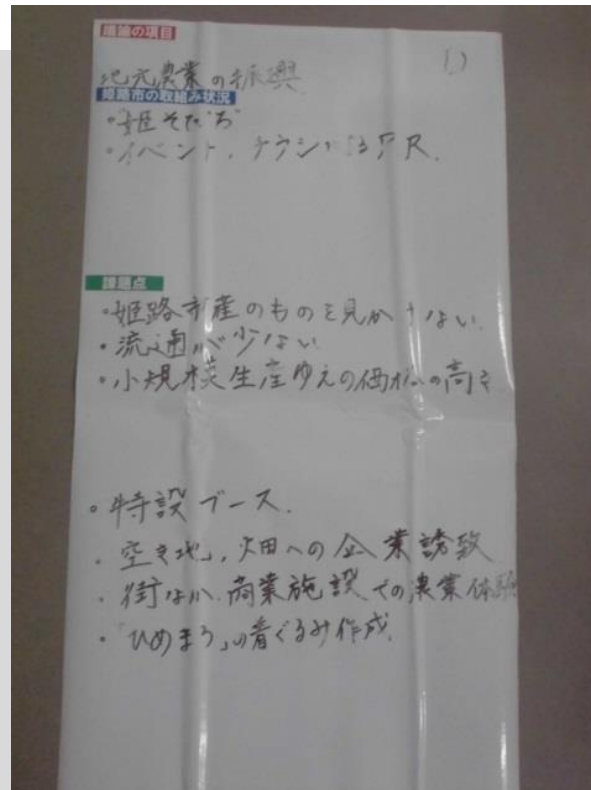 議論の項目
1)
地元農業の振興
姫路市の取組み状況
・姫そだち
・イベント、チラシによるPR.
課題点
・姫路市産のものを見かけない
・流通が少ない
・小規模生産ゆえの価格の高さ
・特設ブース.
・空き地,畑への企業誘致
・街なか.商業施設での農業体験
・「ひめまろ」の着ぐるみ作成.